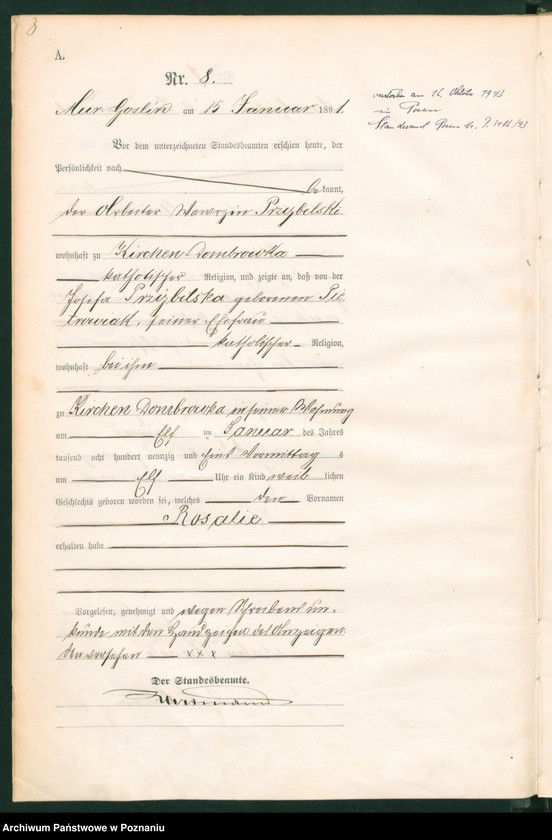 8
A.
Nr. 8.
Mur. Goslin am 15 Januar 1891.
Vor dem unterzeichneten Standesbeamten erschien heute, der
Persönlichkeit nach
bekannt,
der Arbeiter Wawrzin Przybilski
wohnhaft zu Kirchen Dombrowka
katholischer Religion, und zeigte an, daß von der
Josefa Przybilska geborenen Pie-
trowiak, seiner Ehefrau
katholischer Religion,
wohnhaft bei ihm
zu Kirchen Dombrowka in seiner Wohnung
am Elf ten Januar des Jahres
tausend acht hundert neunzig und Eins Vormittag s
um Elf Uhr ein Kind weib lichen
Geschlechts geboren worden sei, welches den Vornamen
Rosalie
erhalten habe
Vorgelesen, genehmigt und wegen Schreibens un-
kunde mit den Handzeichen des Anzeigen-
den versehen x x x
Der Standesbeamte.
verstorben am 16. Oktober 1943
in Posen
Standesamt Posen Nr.
Archiwum Państwowe w Poznaniu